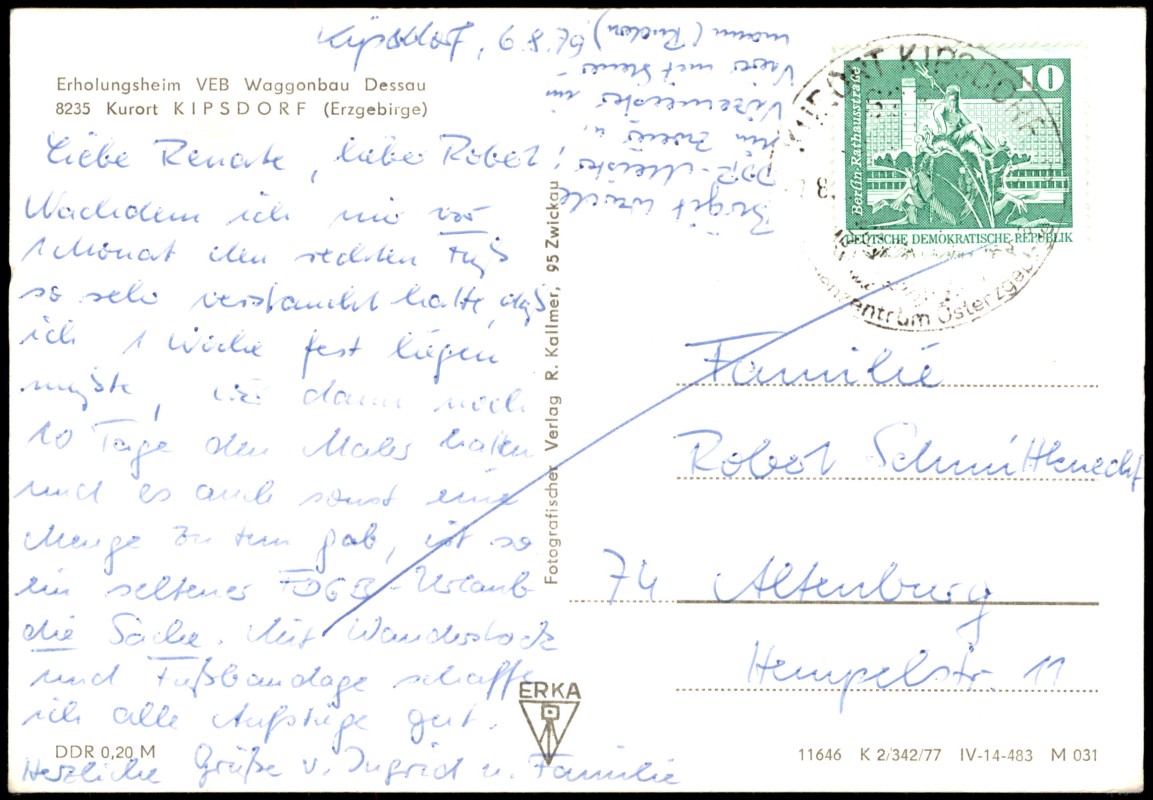 Erholungsheim VEB Waggonbau Dessau
8235 Kurort KIPSDORF (Erzgebirge)
Kipsdorf, 9.8.
Liebe Renate, lieber Robert!
Nachdem ich mir vor
1 Monat den rechten Fuß
so sehr verstaucht hatte, daß
ich 1 Woche fest liegen
mußte, wir dann noch
10 Tage den Maler hatten
und es auch sonst eine
Menge zu tun gab, ist so
ein seltener FDGB-Urlaub
die Sache. Mit Wanderstock
und Fußbandage schaffe
ich alle Aufstiege gut.
Herzliche Grüße v. Ingrid u. Familie
Birgit wurde
DDR-Meister
im Zweier u.
Vizemeister im
Vierer mit Steuer-
mann (Rudern)
DDR 0,20 M
Fotografischer Verlag R. Kallmer, 95 Zwickau
ERKA
10
Berlin-Rathausstraße
DEUTSCHE DEMOKRATISCHE REPUBLIK
KURORT KIPSDORF
Osterzgeb
Familie
Robert Schmittknecht
74 Altenburg
Hempelstr. 11
11646 K 2/342/77 IV-14-483 M 031